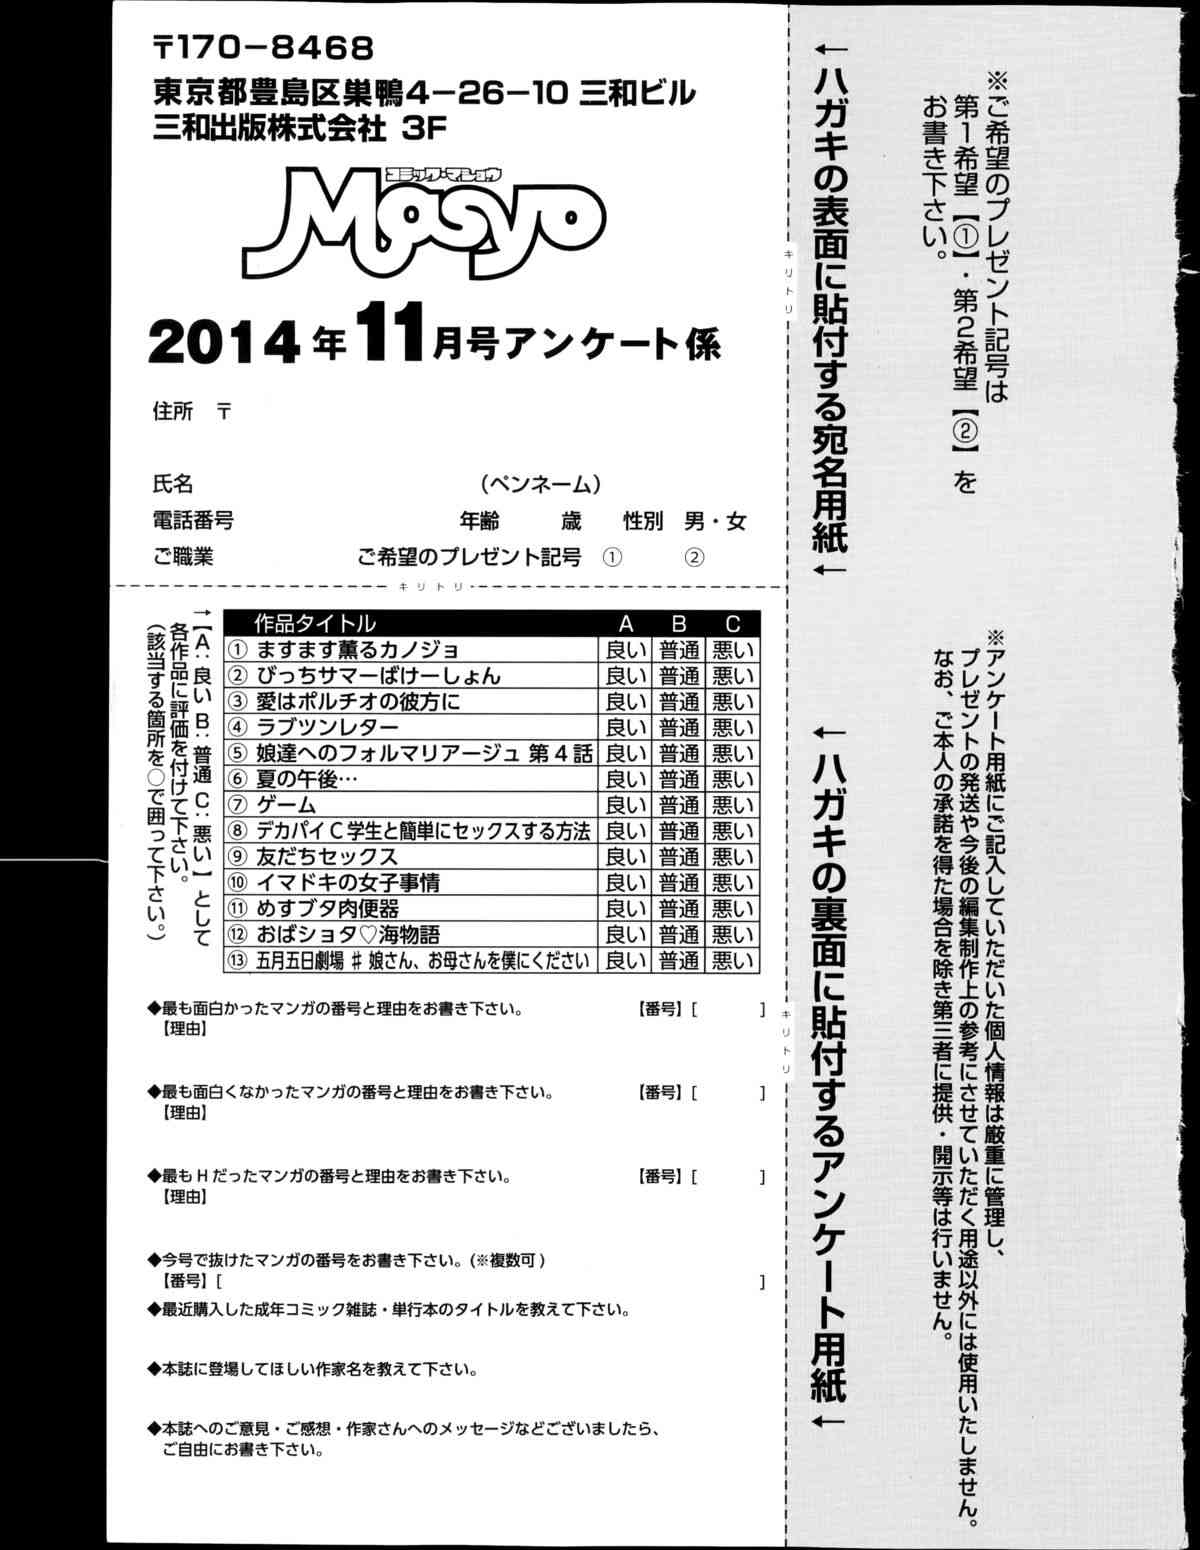 〒170-8468
東京都豊島区巣鴨4-26-10 三和ビル
三和出版株式会社 3F
コミック・マショウ
Masyo
2014年11月号アンケート係
住所 〒
氏名 （ペンネーム）
電話番号 年齢 歳 性別 男・女
ご職業 ご希望のプレゼント記号 ① ②
キリトリ
→【A:良い B:普通 C:悪い】として
各作品に評価を付けて下さい。
（該当する箇所を○で囲って下さい。）
作品タイトル A B C
① ますます薫るカノジョ 良い 普通 悪い
② びっちサマーばけーしょん 良い 普通 悪い
③ 愛はポルチオの彼方に 良い 普通 悪い
④ ラブツンレター 良い 普通 悪い
⑤ 娘達へのフォルマリアージュ 第4話 良い 普通 悪い
⑥ 夏の午後… 良い 普通 悪い
⑦ ゲーム 良い 普通 悪い
⑧ デカパイC学生と簡単にセックスする方法 良い 普通 悪い
⑨ 友だちセックス 良い 普通 悪い
⑩ イマドキの女子事情 良い 普通 悪い
⑪ めすブタ肉便器 良い 普通 悪い
⑫ おばショタ♡海物語 良い 普通 悪い
⑬ 五月五日劇場 ♯ 娘さん、お母さんを僕にください 良い 普通 悪い
◆最も面白かったマンガの番号と理由をお書き下さい。 【番号】[ ]
【理由】
◆最も面白くなかったマンガの番号と理由をお書き下さい。 【番号】[ ]
【理由】
◆最もHだったマンガの番号と理由をお書き下さい。 【番号】[ ]
【理由】
◆今号で抜けたマンガの番号をお書き下さい。(※複数可)
【番号】[ ]
◆最近購入した成年コミック雑誌・単行本のタイトルを教えて下さい。
◆本誌に登場してほしい作家名を教えて下さい。
◆本誌へのご意見・ご感想・作家さんへのメッセージなどございましたら、
ご自由にお書き下さい。
キリトリ
キリトリ
←ハガキの表面に貼付する宛名用紙←
※ご希望のプレゼント記号は
第1希望【①】・第2希望【②】を
お書き下さい。
←ハガキの裏面に貼付するアンケート用紙←
※アンケート用紙にご記入していただいた個人情報は厳重に管理し、
プレゼントの発送や今後の編集制作上の参考にさせていただく用途以外には使用いたしません。
なお、ご本人の承諾を得た場合を除き第三者に提供・開示等は行いません。